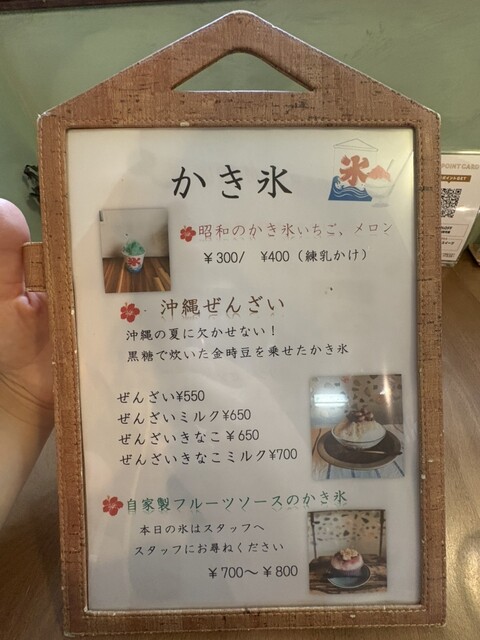 かき氷
氷
昭和のかき氷いちご、メロン
¥300/ ¥400（練乳かけ）
沖縄ぜんざい
沖縄の夏に欠かせない！
黒糖で炊いた金時豆を乗せたかき氷
ぜんざい¥550
ぜんざいミルク¥650
ぜんざいきなこ¥650
ぜんざいきなこミルク¥700
自家製フルーツソースのかき氷
本日の氷はスタッフへ
スタッフにお尋ねください
¥700～¥800
POINT CARD